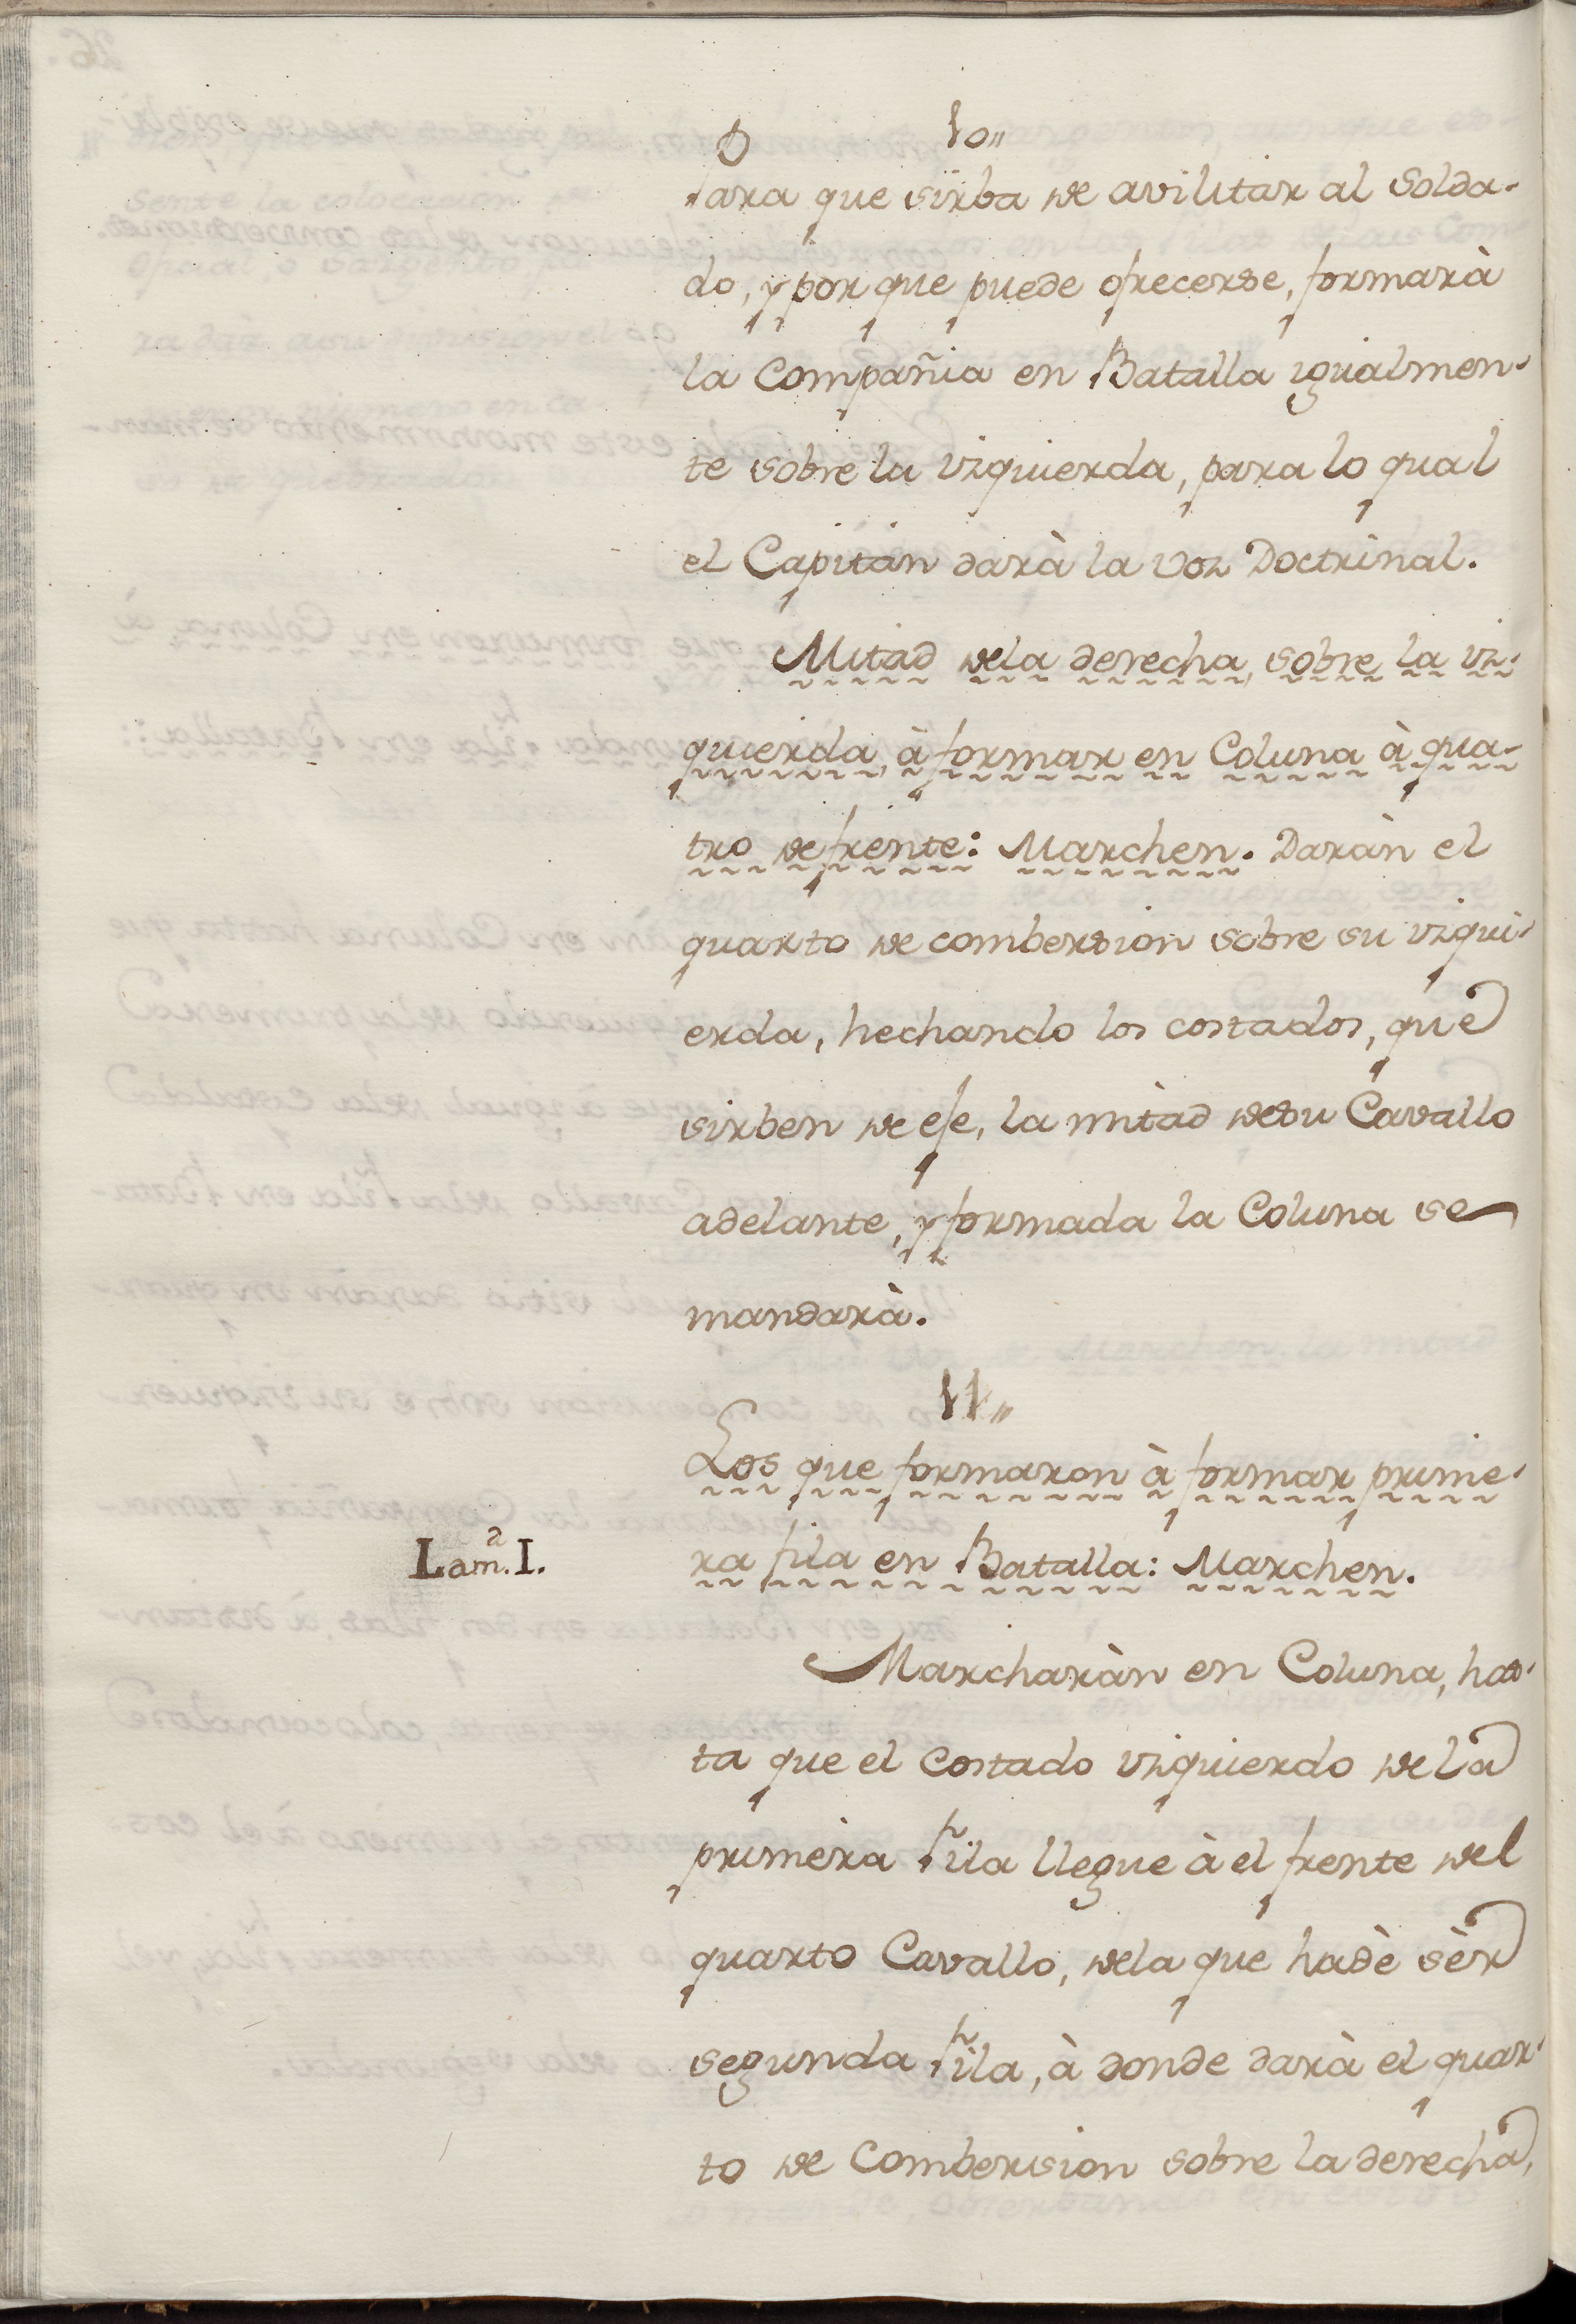 10,,
Para que sirba de avilitar al solda-
do, y por que puede ofrecerse, formarà
la Compañia en Batalla igualmen-
te sobre la izquierda, para lo qual
el Capitàn darà la voz Doctrinal.
Mitad dela derecha, sobre la iz-
quierda, à formar en Coluna à qua-
tro de frente: Marchen. Daràn el
quarto de combersion sobre su izqui-
erda, hechando los costados, que
sirben de eje, la mitad desu Cavallo
adelante, y formada la Coluna se
mandarà.
11,,
Los que formaron à formar prime-
Lam.ª I.
ra fila en Batalla: Marchen.
Marcharàn en Coluna, has-
ta que el costado izquierdo de la
primera Fila llegue à el frente del
quarto Cavallo, dela que hadè sèr
segunda Fila, à donde darà el quar-
to de Combersion sobre la derecha,